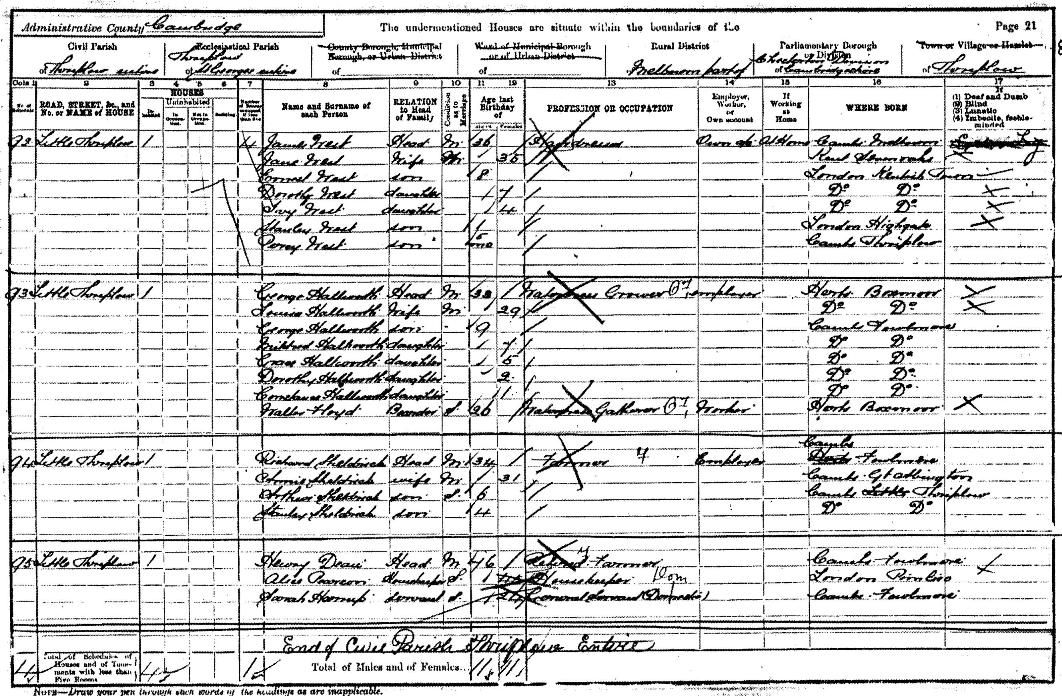 Administrative County Cambridge The undermentioned Houses are situate within the boundaries of the Page 21
Civil Parish Ecclesiastical Parish County Borough, Municipal Borough, or Urban District Ward of Municipal Borough or of Urban District Rural District Parliamentary Borough or Division Town or Village or Hamlet
of Thriplow entire Thriplow St Georges entire of of Melbourn part of Chesterton Division Cambridgeshire of Thriplow
Cols 1 2 3 4 5 6 7 8 9 10 11 12 13 14 15 16 17
No. of Schedule ROAD, STREET, &c., and No. or NAME of HOUSE HOUSES Inhabited Uninhabited In Occupation Not in Occupation Building Name and Surname of each Person RELATION to Head of Family Condition as to Marriage Age last Birthday of Males Females PROFESSION OR OCCUPATION Employer, Worker, or Own account If Working at Home WHERE BORN If (1) Deaf and Dumb (2) Blind (3) Lunatic (4) Imbecile, feeble-minded
92 Little Thriplow 1 4 James West Head M 36 Own ac At Home Cambs Melbourn
Jane West Wife M 35 Kent Sevenoaks
Ernest West son 8 London Kentish Town
Dorothy West daughter 7 Do Do
Ivy West daughter 4 Do Do
Stanley West son London Highgate
Percy West son Cambs Thriplow
93 Little Thriplow 1 George Hallworth Head M 32 Watercress Grower employer Herts Boxmoor
Louisa Hallworth Wife M 29 Do Do
George Hallworth son 9 Cambs Fowlmere
Mildred Hallworth daughter 7 Do Do
Grace Hallworth daughter 5 Do Do
Dorothy Hallworth daughter 2 Do Do
Constance Hallworth daughter 1 Do Do
Walter Floyd Boarder S 26 Watercress Gatherer Worker Herts Boxmoor
94 Little Thriplow 1 Richard Sheldrick Head M 34 Farmer Employer Cambs Herts Fowlmere
Annie Sheldrick wife M 31 Cambs Gt Abington
Arthur Sheldrick son S 6 Cambs Little Thriplow
Stanley Sheldrick son 4 Do Do
95 Little Thriplow 1 Henry Dean Head M 46 Retired Farmer Cambs Fowlmere
Alice Pearson Housekeeper S Housekeeper Dom London Pimlico
Sarah servant S General Servant (Domestic) Cambs Fowlmere
End of Civil Parish Thriplow Entire
4 Total of Schedules of Houses and of Tenements with less than Five Rooms 4 1 Total of Males and of Females... 11 11
NOTE—Draw your pen through such words of the headings as are inapplicable.